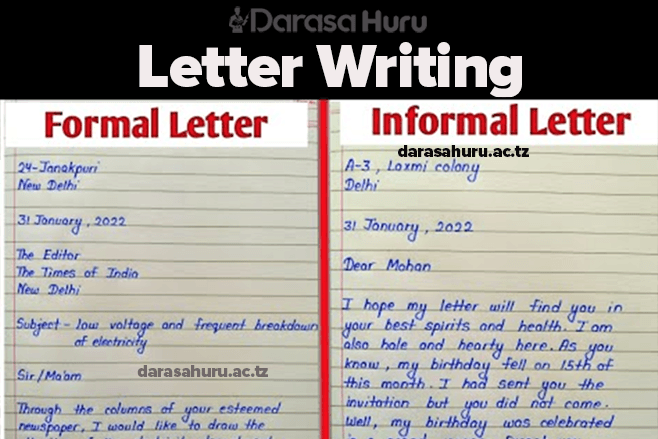 Darasa Huru
Letter Writing
Formal Letter
24-Janakpuri
New Delhi
31 January, 2022
The Editor
The Times of India
New Delhi
Subject - low voltage and frequent breakdown
of electricity
Sir/Ma'am
darasahuru.ac.tz
Through the columns of your esteemed
newspaper, I would like to draw the
Informal Letter
darasahuru.ac.tz
A-3, Laxmi colony
Delhi
31 January, 2022
Dear Mohan
I hope my letter will find you in
your best spirits and health. I am
also hale and hearty here. As you
know, my birthday fell on 15th of
this month. I had sent you the
invitation but you did not come.
Well, my birthday was celebrated